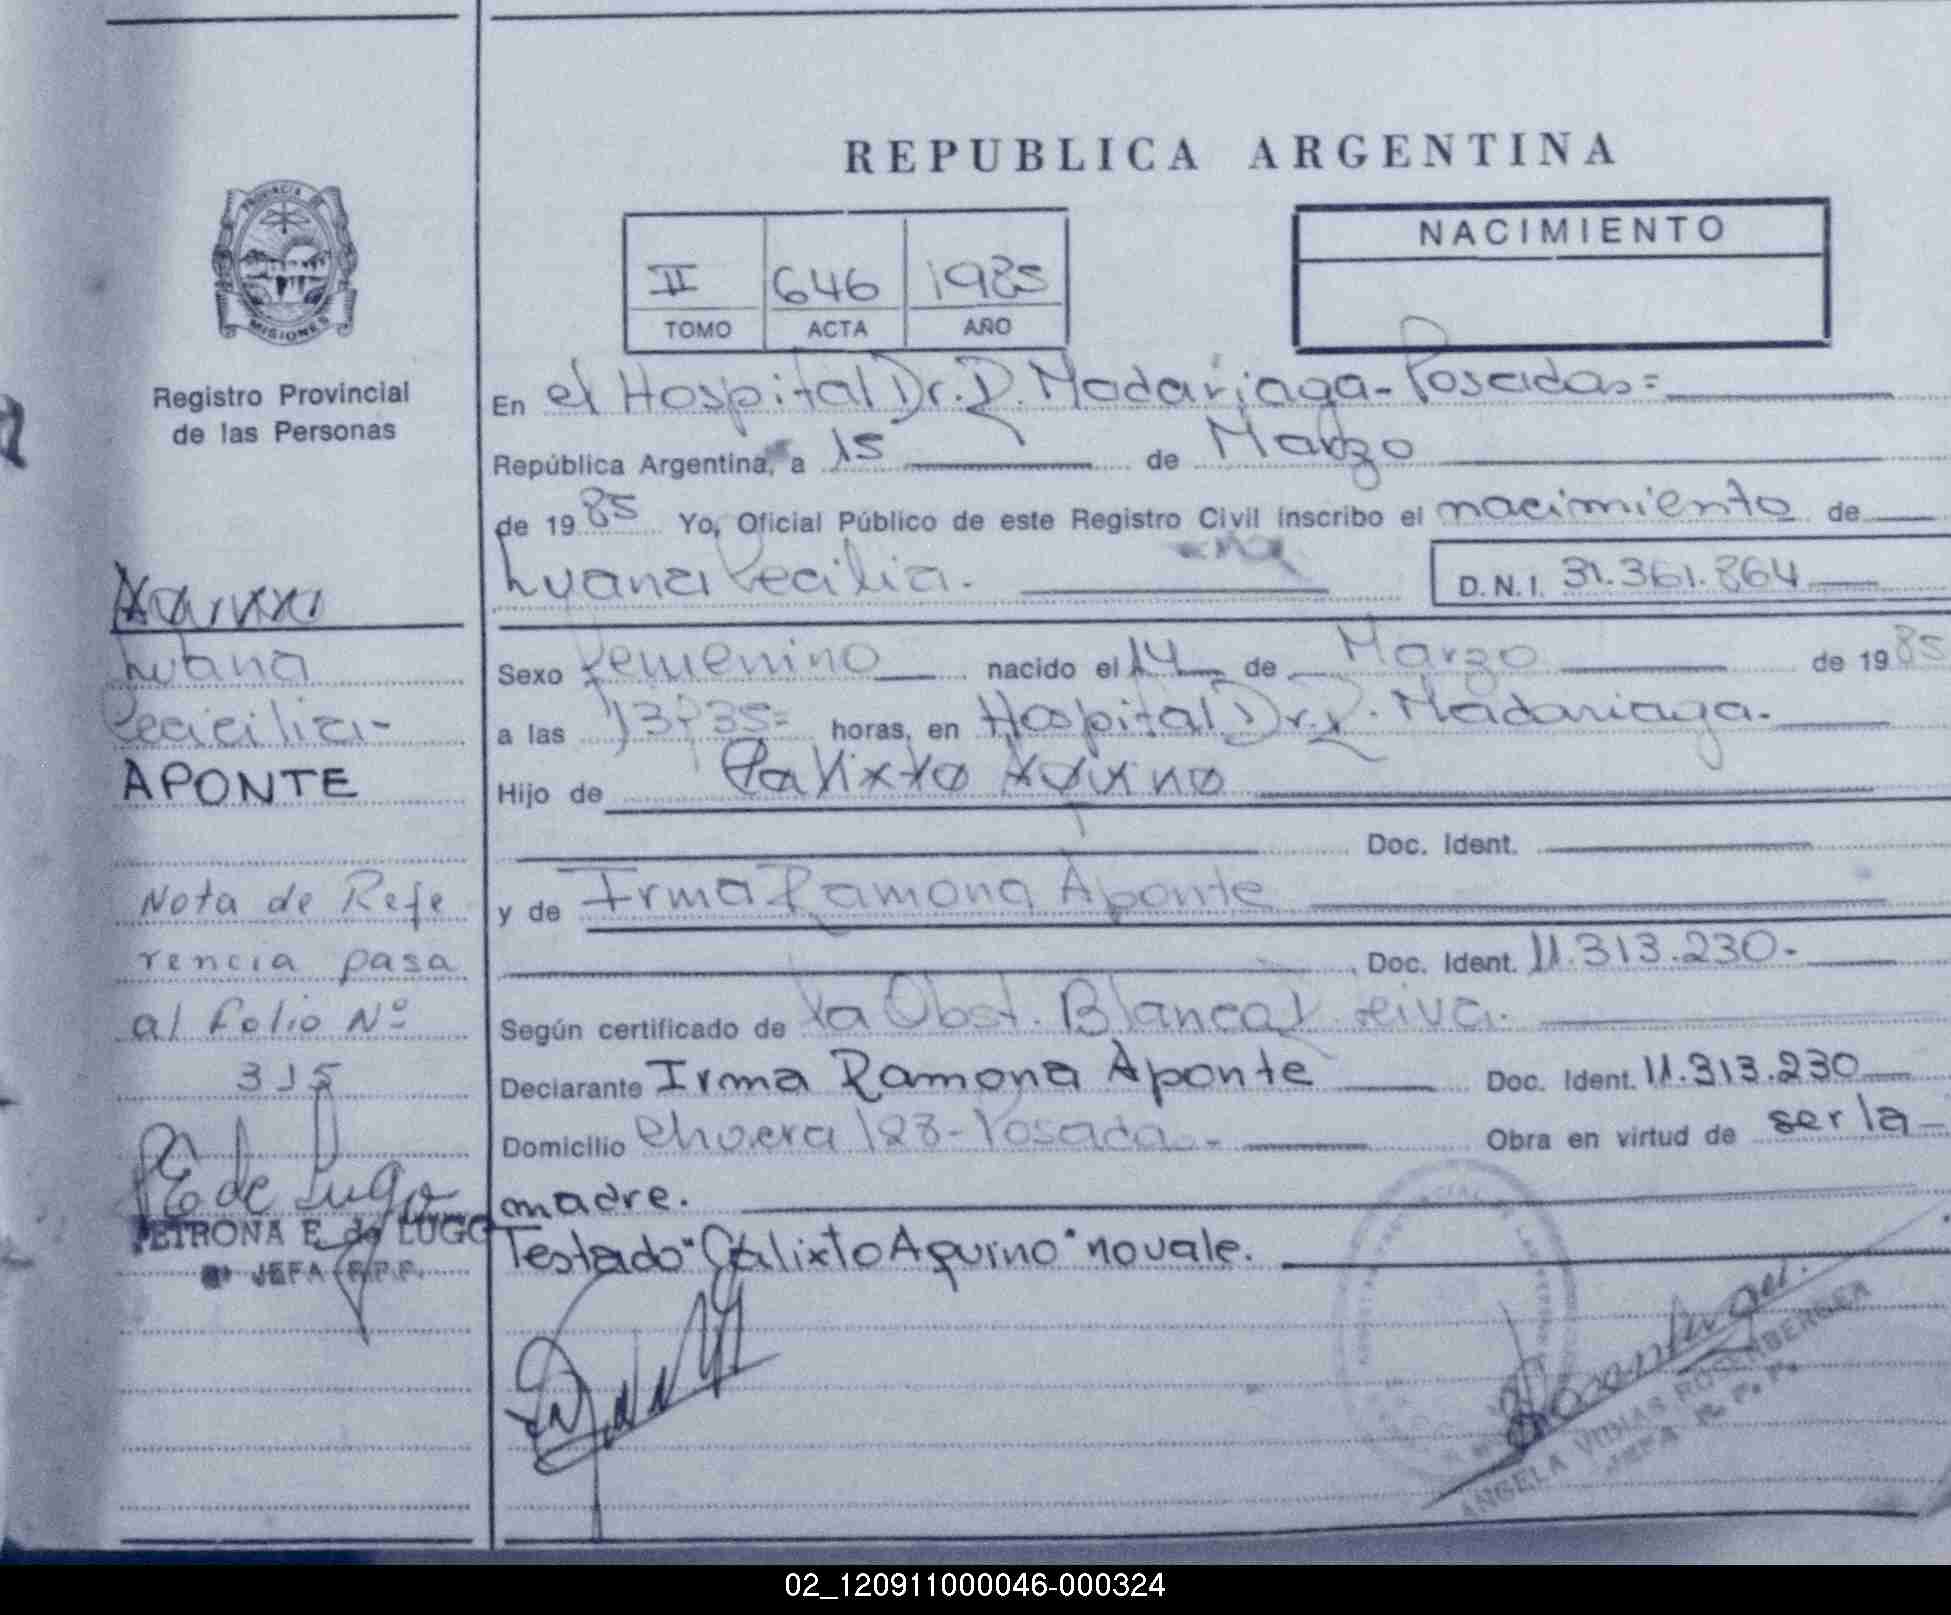 REPUBLICA ARGENTINA
PROVINCIA DE MISIONES
II 646 1985
TOMO ACTA AÑO
NACIMIENTO
Registro Provincial
de las Personas
En el Hospital Dr. R. Madariaga-Posadas=
República Argentina, a 15 de Marzo
de 1985 Yo, Oficial Público de este Registro Civil inscribo el nacimiento de
Luana Cecilia.
D.N.I. 31.361.864
Luana
APONTE
Nota de Refe
rencia pasa
al folio Nº
315
PETRONA E. de LUGO
JEFA R.P.P.
Sexo femenino nacido el 14 de Marzo de 1985
a las 13,35= horas, en Hospital Dr. R. Madariaga.
Hijo de Calixto Aquino
Doc. Ident.
y de Irma Ramona Aponte
Doc. Ident. 11.313.230-
Según certificado de la Obst. Blanca Leiva.
Declarante Irma Ramona Aponte Doc. Ident. 11.313.230
Domicilio 128-Posadas- Obra en virtud de ser la
madre.
Testado "Calixto Aquino" no vale.
ANGELA
JEFA R. P. P.
02_120911000046-000324